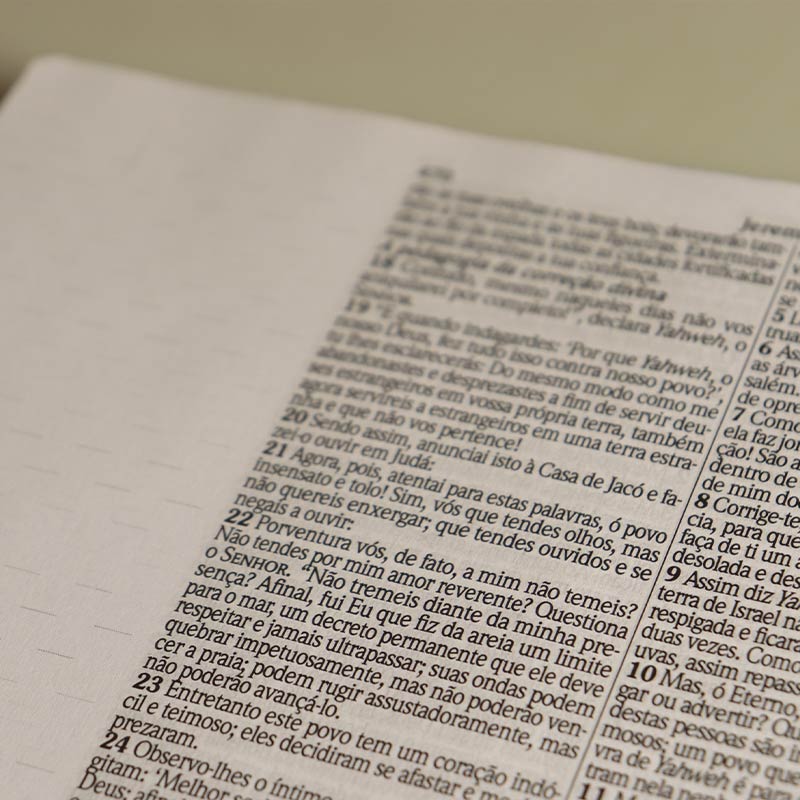 Jerem
tão as tuas ovelhas e os teus bois; devorarão tam-
bém a tua vinha e as tuas figueiras. Extermina-
todas as cidades fortificadas
a tua confiança.
A pedagogia da correção divina
18 Contudo, mesmo naqueles dias não vos
aniquilarei por completo!”, declara Yahweh, o
19 “E quando indagardes: ‘Por que Yahweh, o
nosso Deus, fez tudo isso contra nosso povo?’,
tu lhes esclarecerás: Do mesmo modo como me
abandonastes e desprezastes a fim de servir deu-
ses estrangeiros em vossa própria terra, também
agora servireis a estrangeiros em uma terra estra-
nha e que não vos pertence!
20 Sendo assim, anunciai isto à Casa de Jacó e fa-
zei-o ouvir em Judá:
21 Agora, pois, atentai para estas palavras, ó povo
insensato e tolo! Sim, vós que tendes olhos, mas
não quereis enxergar; que tendes ouvidos e se
negais a ouvir:
22 Porventura vós, de fato, a mim não temeis?
Não tendes por mim amor reverente? Questiona
o SENHOR. “Não tremeis diante da minha pre-
sença? Afinal, fui Eu que fiz da areia um limite
para o mar, um decreto permanente que ele deve
respeitar e jamais ultrapassar; suas ondas podem
quebrar impetuosamente, mas não poderão ven-
cer a praia; podem rugir assustadoramente, mas
não poderão avançá-lo.
23 Entretanto este povo tem um coração indó-
cil e teimoso; eles decidiram se afastar e
prezaram.
24 Observo-lhes o íntimo
gitam: ‘Melhor
Deus;
se
5
trua
6 Ass
as árv
salém.
de opre
7 Como
ela faz jor
ção! São a
dentro de
de mim do
8 Corrige-te
cia, para qu
faça de ti um a
desolada e des
9 Assim diz Ya
terra de Israel
respigada e ficara
duas vezes. Como
uvas, assim repass
10 Mas, ó Eterno,
gar ou advertir? Qu
destas pessoas são i
mosos; um povo que
vra de Yahweh é para
tram nela
11 M